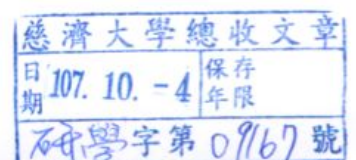 慈濟大學總收文章
日期 107. 10. -4 保存年限
研學字第 09167 號